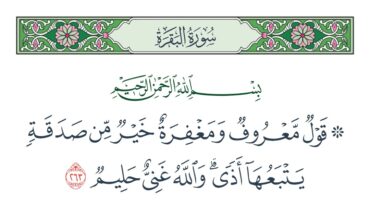 سُورَةُ البَقَرَةِ
بِسْمِ اللَّهِ الرَّحْمَٰنِ الرَّحِيمِ
۞ قَوْلٌ مَّعْرُوفٌ وَمَغْفِرَةٌ خَيْرٌ مِّن صَدَقَةٍ
يَتْبَعُهَآ أَذًى ۗ وَاللَّهُ غَنِىٌّ حَلِيمٌ ٢٦٣